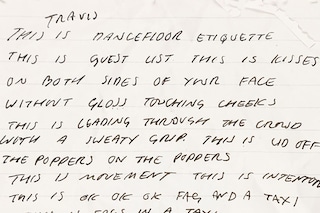 TRAVIS
THIS IS DANCEFLOOR ETIQUETTE
THIS IS GUEST LIST THIS IS KISSES
ON BOTH SIDES OF YOUR FACE
WITHOUT GLOSS TOUCHING CHEEKS
THIS IS LEADING THROUGH THE CROWD
WITH A SWEATY GRIP THIS IS LID OFF
THE POPPERS ON THE POPPERS
THIS IS MOVEMENT THIS IS INTENTION
THIS IS OK OK OK FAG AND A TAXI
IN A TAXI